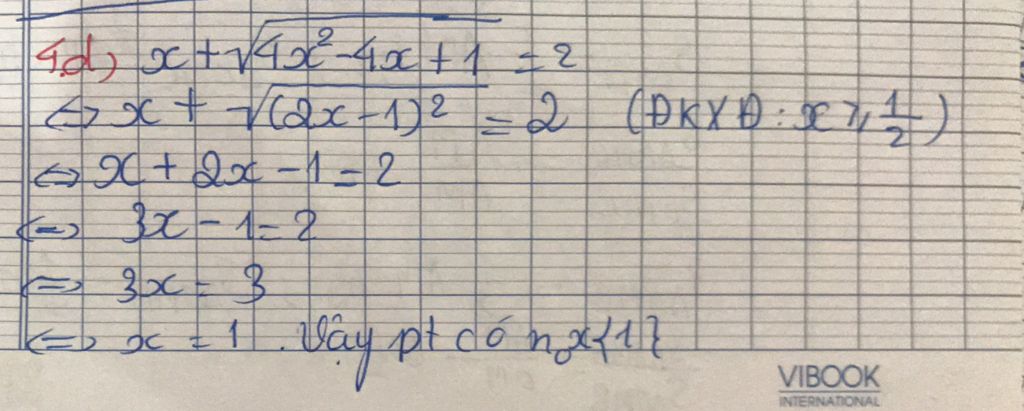 4.d) x + √(4x² - 4x + 1) = 2
<=> x + √((2x - 1)²) = 2 (ĐKXĐ: x ⩾ 1/2)
<=> x + 2x - 1 = 2
<=> 3x - 1 = 2
<=> 3x = 3
<=> x = 1. Vậy pt có n₀ x{1}
VIBOOK
INTERNATIONAL